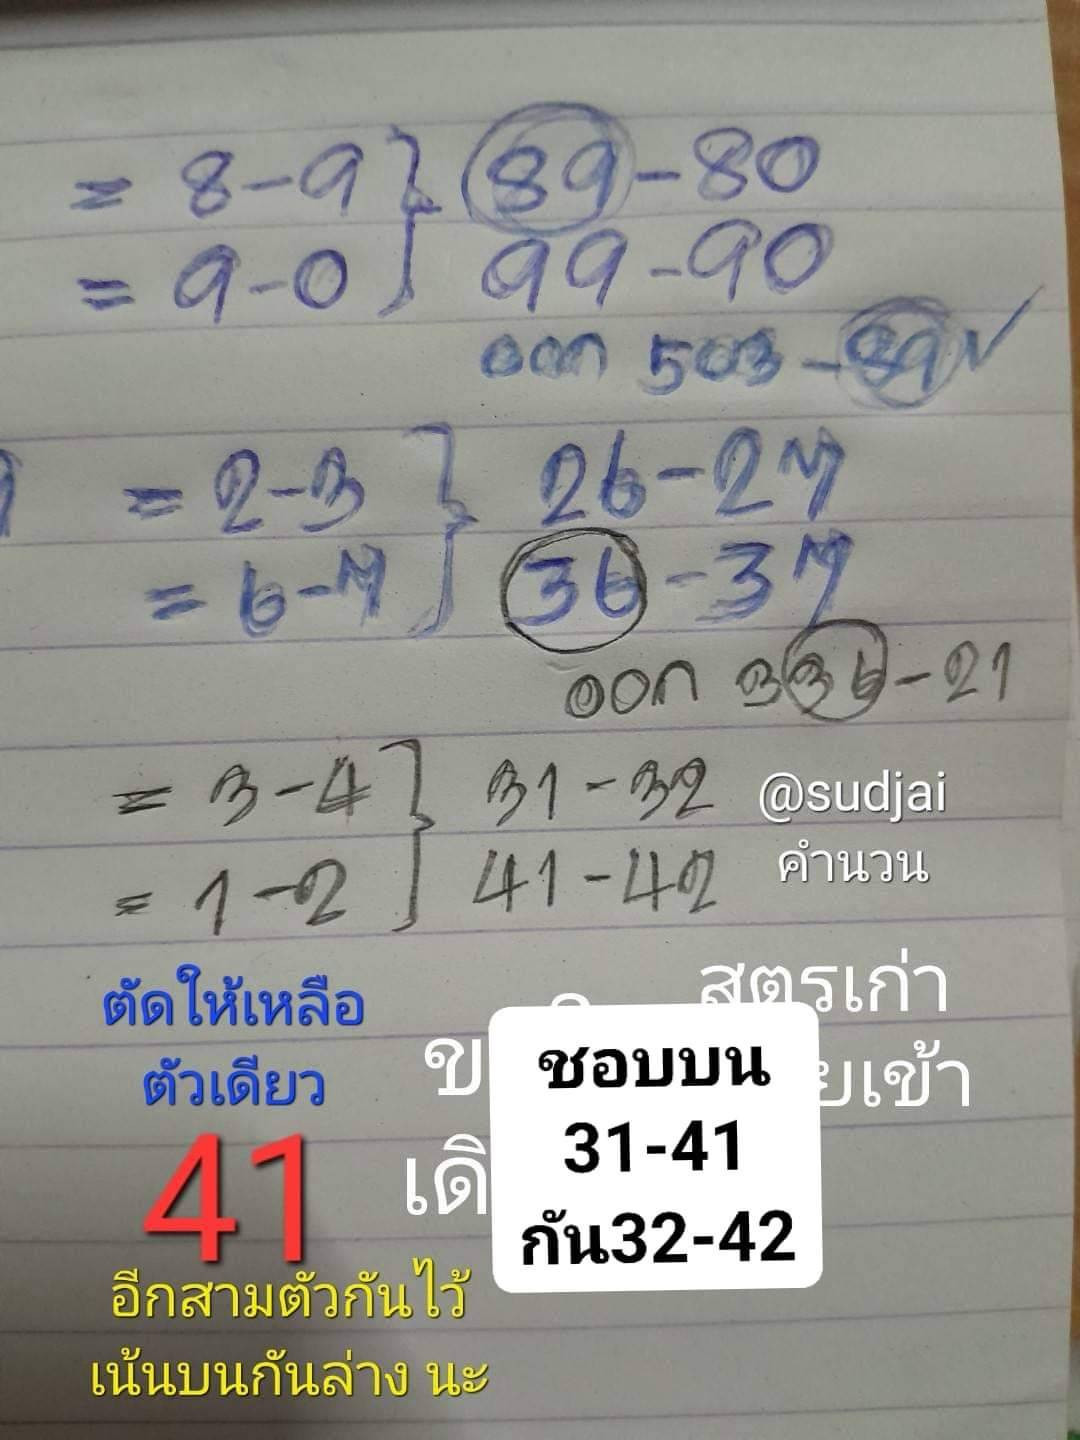 = 8-9 } 89-80
= 9-0 99-90
ออก 503-89✓
= 2-3 } 26-27
= 6-7 36-37
ออก 336-21
= 3-4 } 31-32
= 1-2 41-42
@sudjai
คำนวน
ตัดให้เหลือ
ตัวเดียว
41
อีกสามตัวกันไว้
เน้นบนกันล่าง นะ
สูตรเก่า
ยเข้า
เดิ
ชอบบน
31-41
กัน32-42